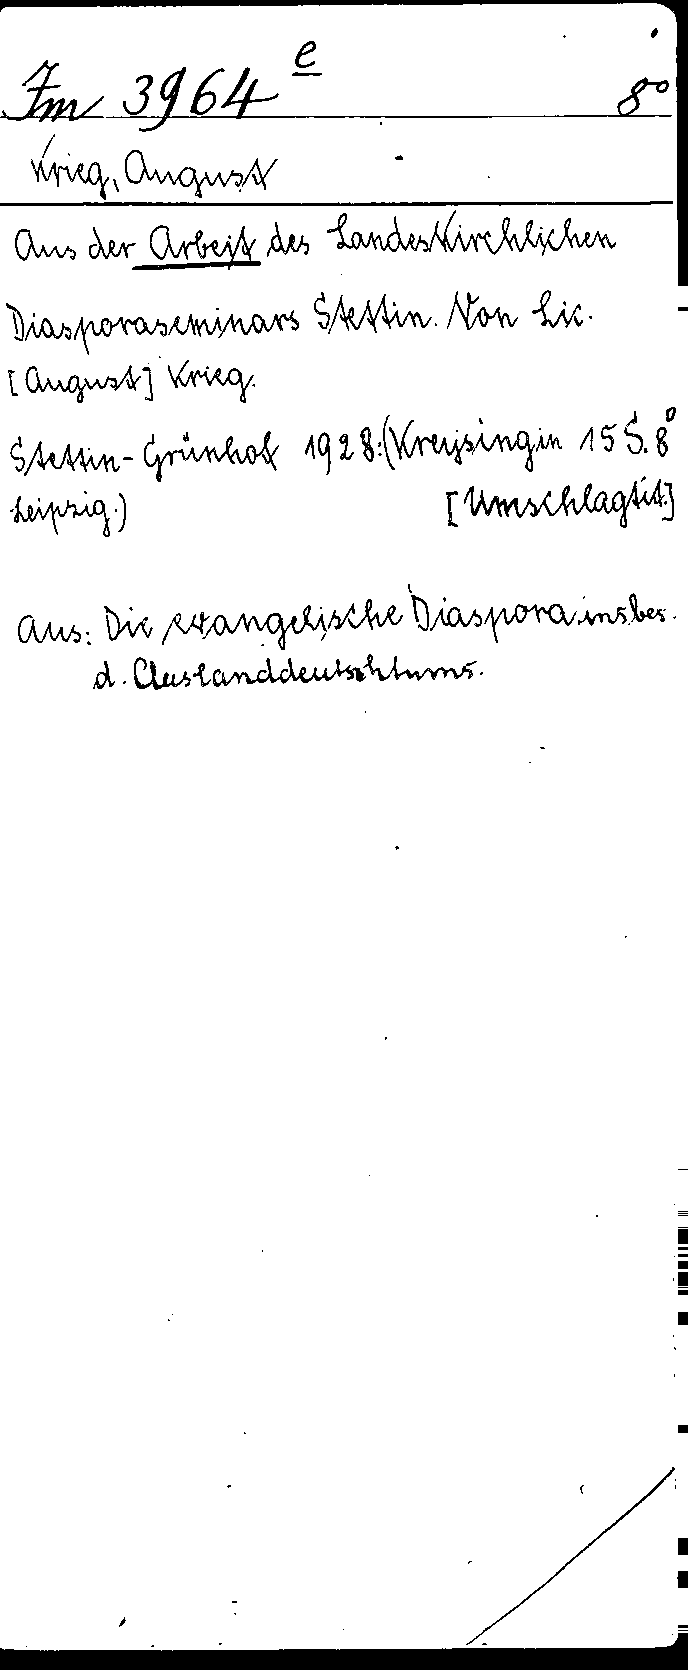 Im 3964 e 8°
Krieg, August
Aus der Arbeit des Landeskirchlichen
Diasporaseminars Stettin. Von Lic.
[August] Krieg.
Stettin-Grünhof 1928: (Kreysing in 15 S. 8°
Leipzig.) [Umschlagtit.]
Aus: Die evangelische Diaspora insbes.
d. Auslanddeutschtums.